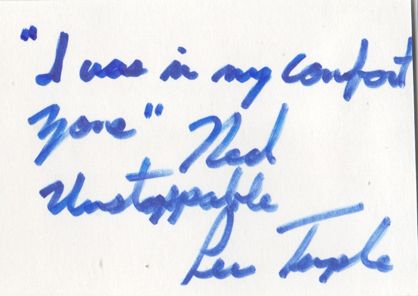 "I was in my comfort
Zone" Ned
Unstoppable
Lew Temple